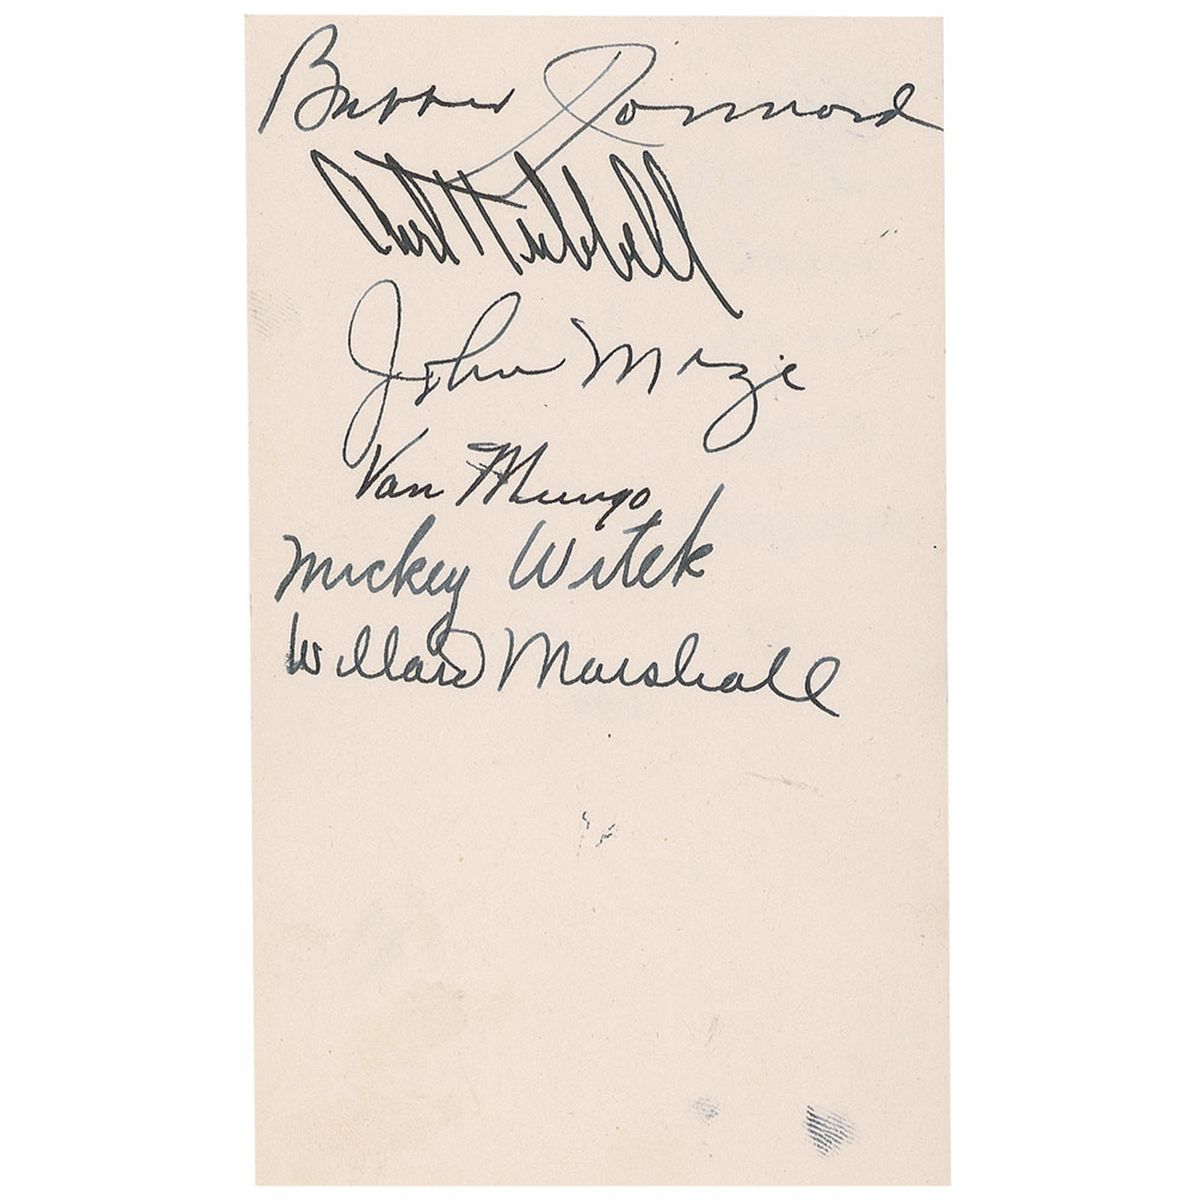 Bubber Jonnard
Carl Hubbell
John Mize
Van Mungo
Mickey Witek
Willard Marshall